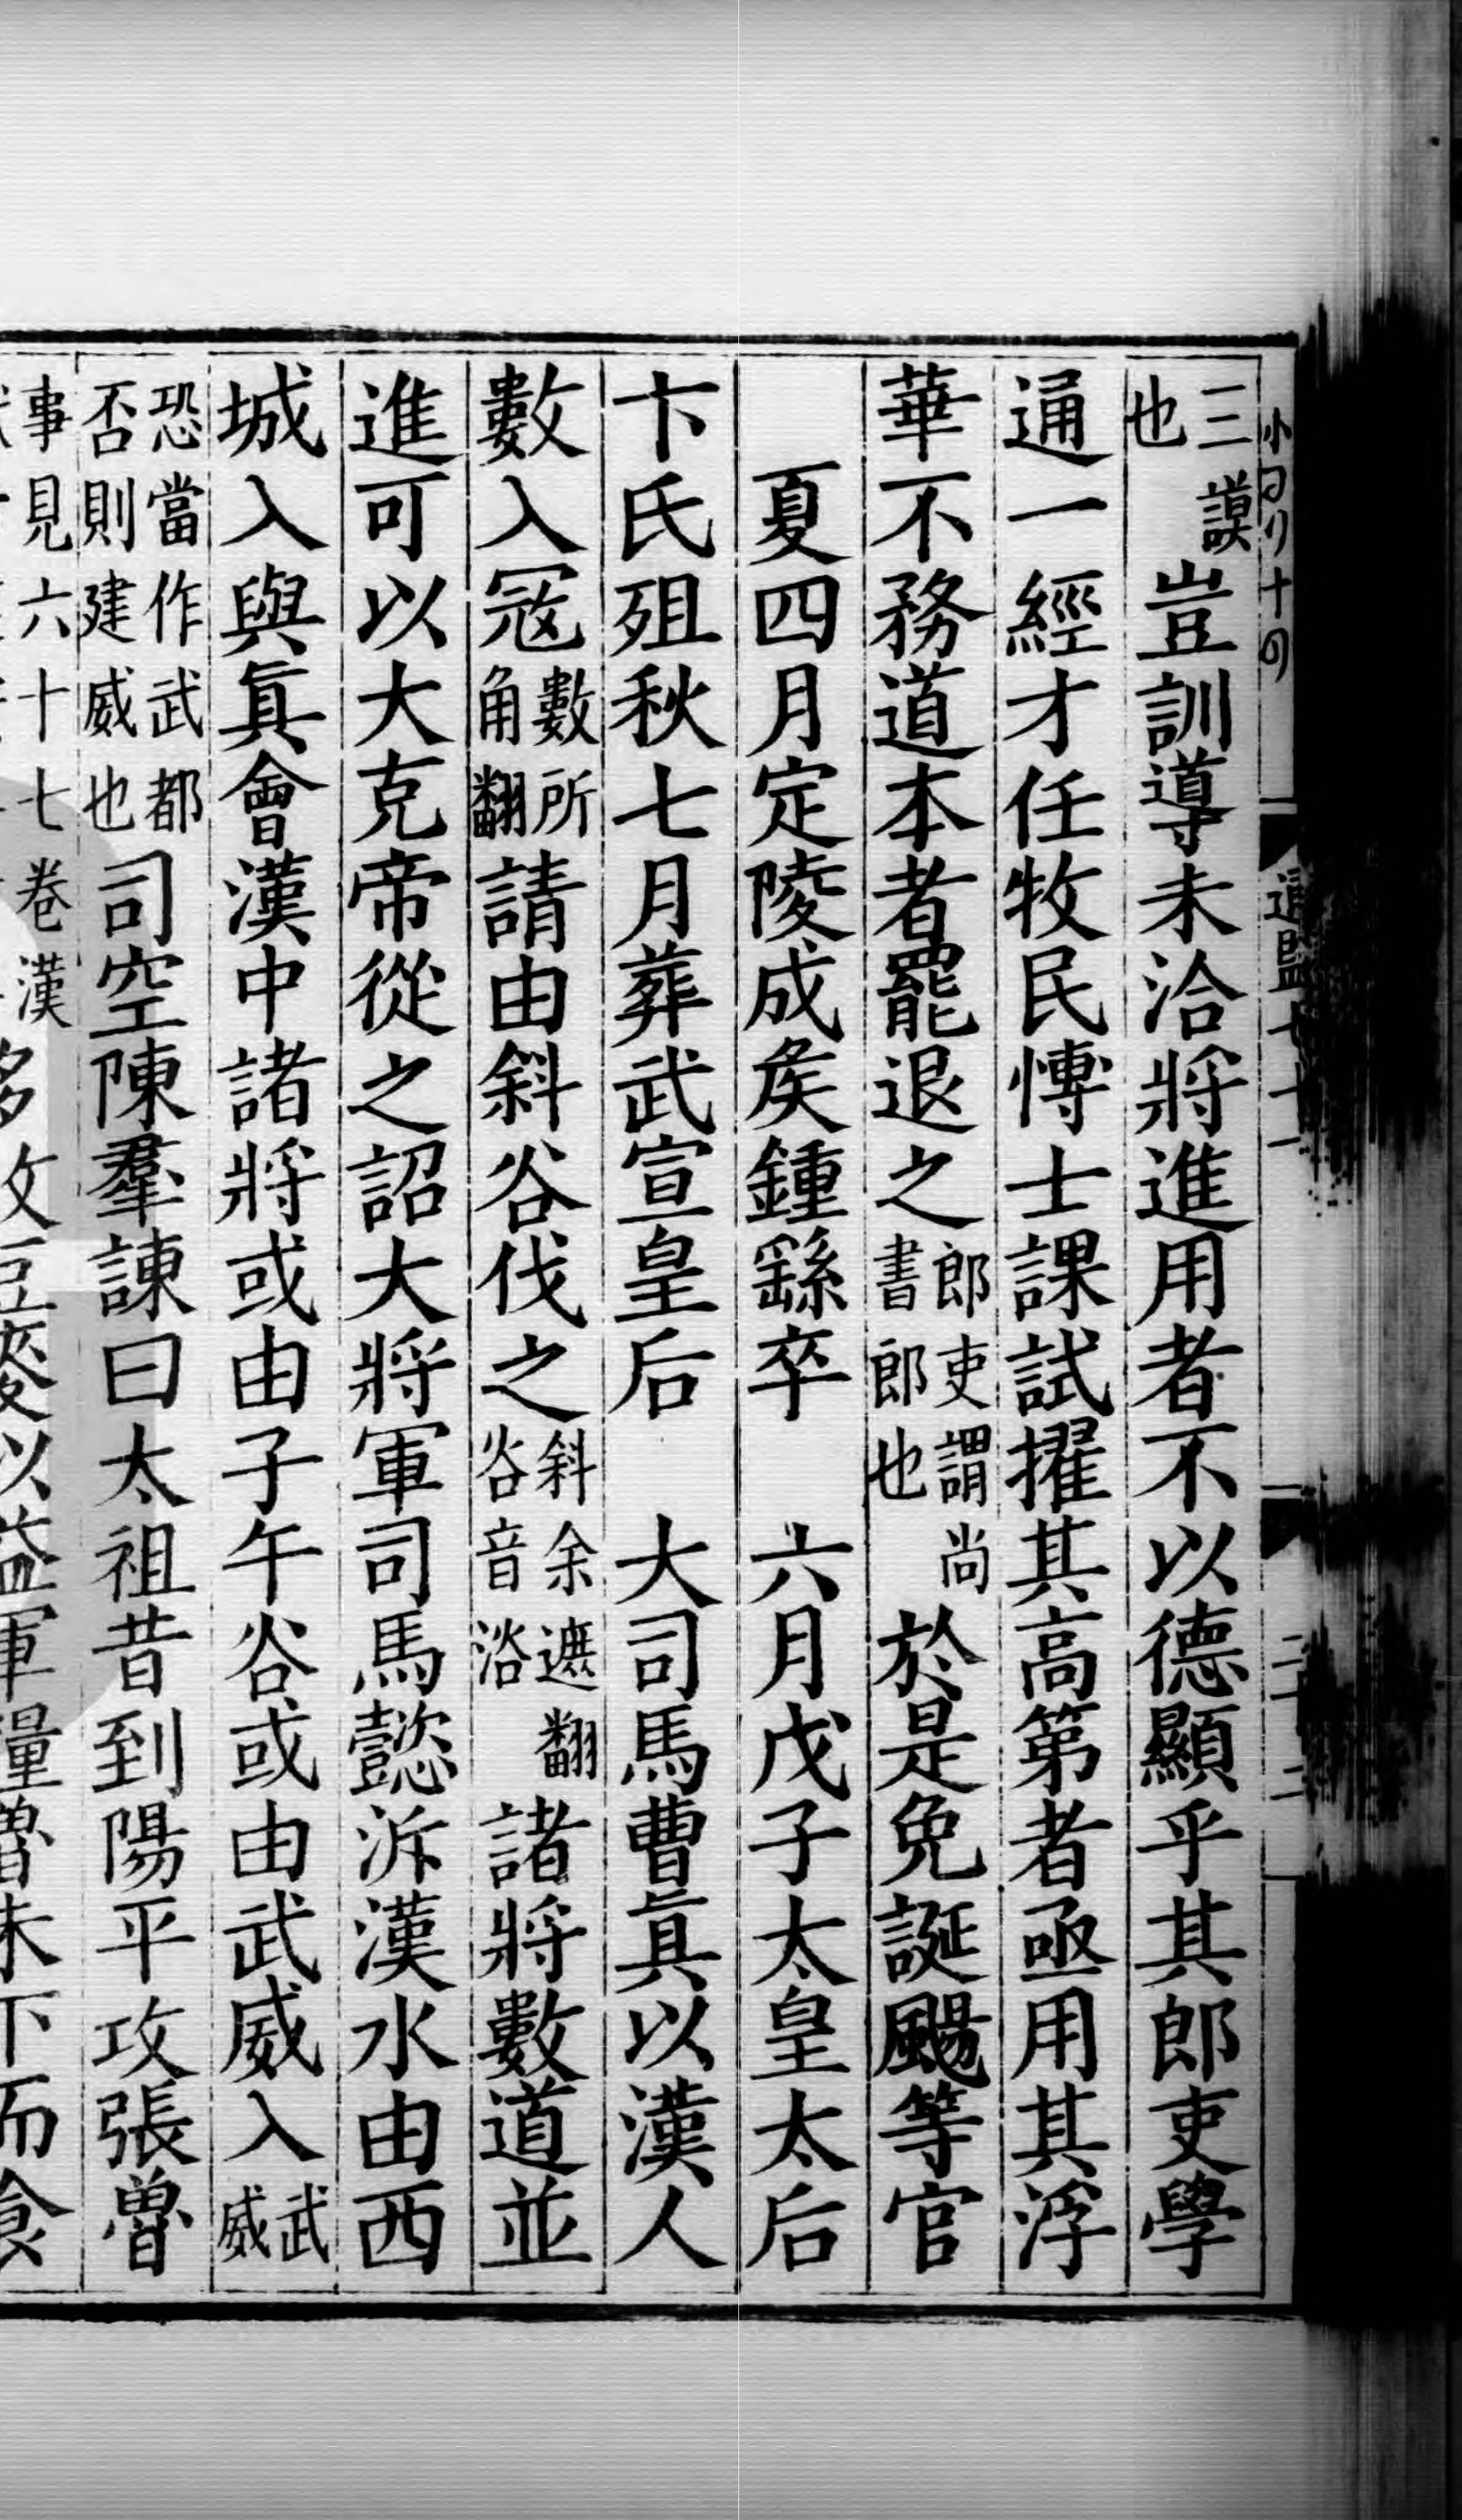 通鑑七十一 二十二
三謨也豈訓導未洽將進用者不以德顯乎其郎吏學
通一經才任牧民博士課試擢其高第者亟用其浮
華不務道本者罷退之郎吏謂尚書郎也於是免誕颺等官
夏四月定陵成矦鍾繇卒 六月戊子太皇太后
卞氏殂秋七月葬武宣皇后 大司馬曹眞以漢人
數入冦數所角翻請由斜谷伐之斜余遮翻谷音浴諸將數道並
進可以大克帝從之詔大將軍司馬懿泝漢水由西
城入與眞會漢中諸將或由子午谷或由武威入武威
恐當作武都否則建威也司空陳羣諫曰太祖昔到陽平攻張魯
事見六十七卷漢